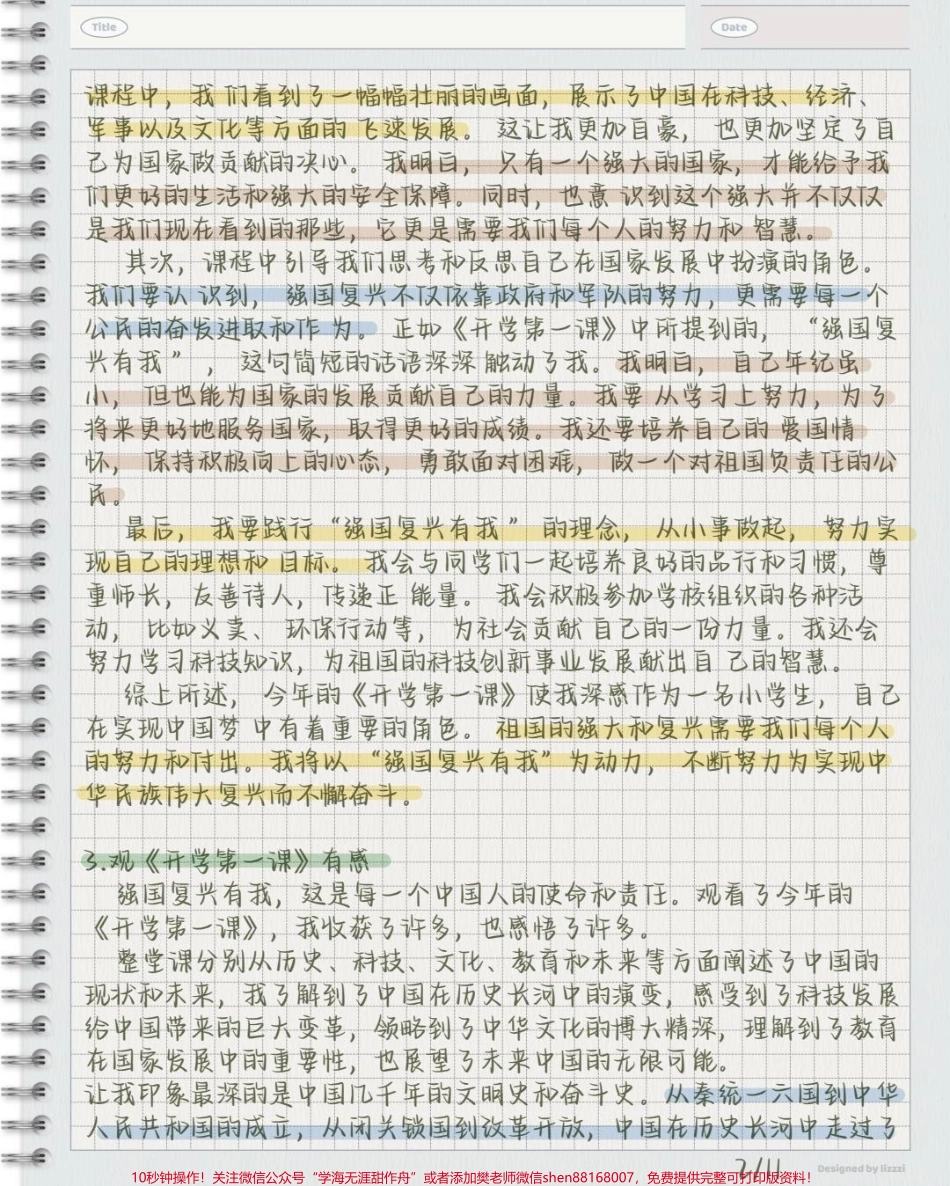 Title
Date
课程中，我们看到了一幅幅壮丽的画面，展示了中国在科技、经济、
军事以及文化等方面的飞速发展。这让我更加自豪，也更加坚定了自
己为国家做贡献的决心。我明白，只有一个强大的国家，才能给予我
们更好的生活和强大的安全保障。同时，也意识到这个强大并不仅仅
是我们现在看到的那些，它更是需要我们每个人的努力和智慧。
其次，课程中引导我们思考和反思自己在国家发展中扮演的角色。
我们要认识到，强国复兴不仅依靠政府和军队的努力，更需要每一个
公民的奋发进取和作为。正如《开学第一课》中所提到的，“强国复
兴有我”，这句简短的话语深深触动了我。我明白，自己年纪虽
小，但也能为国家的发展贡献自己的力量。我要从学习上努力，为了
将来更好地服务国家，取得更好的成绩。我还要培养自己的爱国情
怀，保持积极向上的心态，勇敢面对困难，做一个对祖国负责任的公
民。
最后，我要践行“强国复兴有我”的理念，从小事做起，努力实
现自己的理想和目标。我会与同学们一起培养良好的品行和习惯，尊
重师长，友善待人，传递正能量。我会积极参加学校组织的各种活
动，比如义卖、环保行动等，为社会贡献自己的一份力量。我还会
努力学习科技知识，为祖国的科技创新事业发展献出自己的智慧。
综上所述，今年的《开学第一课》使我深感作为一名小学生，自己
在实现中国梦中有着重要的角色。祖国的强大和复兴需要我们每个人
的努力和付出。我将以“强国复兴有我”为动力，不断努力为实现中
华民族伟大复兴而不懈奋斗。
3.观《开学第一课》有感
强国复兴有我，这是每一个中国人的使命和责任。观看了今年的
《开学第一课》，我收获了许多，也感悟了许多。
整堂课分别从历史、科技、文化、教育和未来等方面阐述了中国的
现状和未来，我了解到了中国在历史长河中的演变，感受到了科技发展
给中国带来的巨大变革，领略到了中华文化的博大精深，理解到了教育
在国家发展中的重要性，也展望了未来中国的无限可能。
让我印象最深的是中国几千年的文明史和奋斗史。从秦统一六国到中华
人民共和国的成立，从闭关锁国到改革开放，中国在历史长河中走过了
2/11
Designed by lizzzi
10秒钟操作！关注微信公众号“学海无涯甜作舟”或者添加樊老师微信shen88168007，免费提供完整可打印版资料！